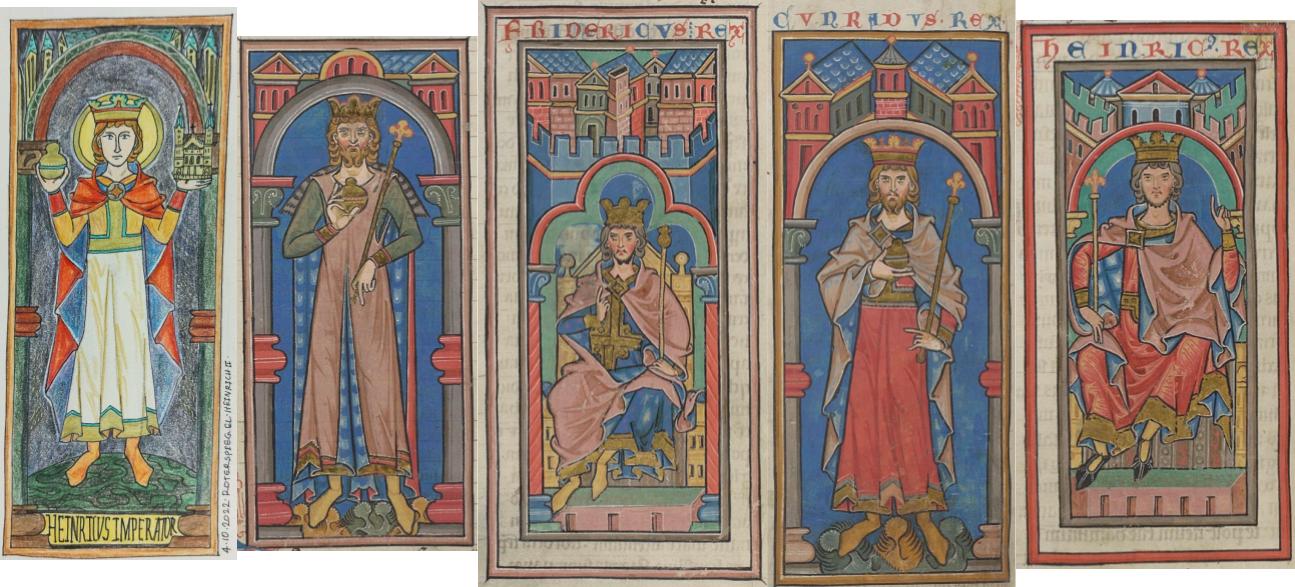 HEINRIUS IMPERATOR
4·10·2022·ROTERSPIEG.GL·HEINRICH II·
FRIDERICVS:REX
CVNRADVS·REX
HEINRICꝰ·REX